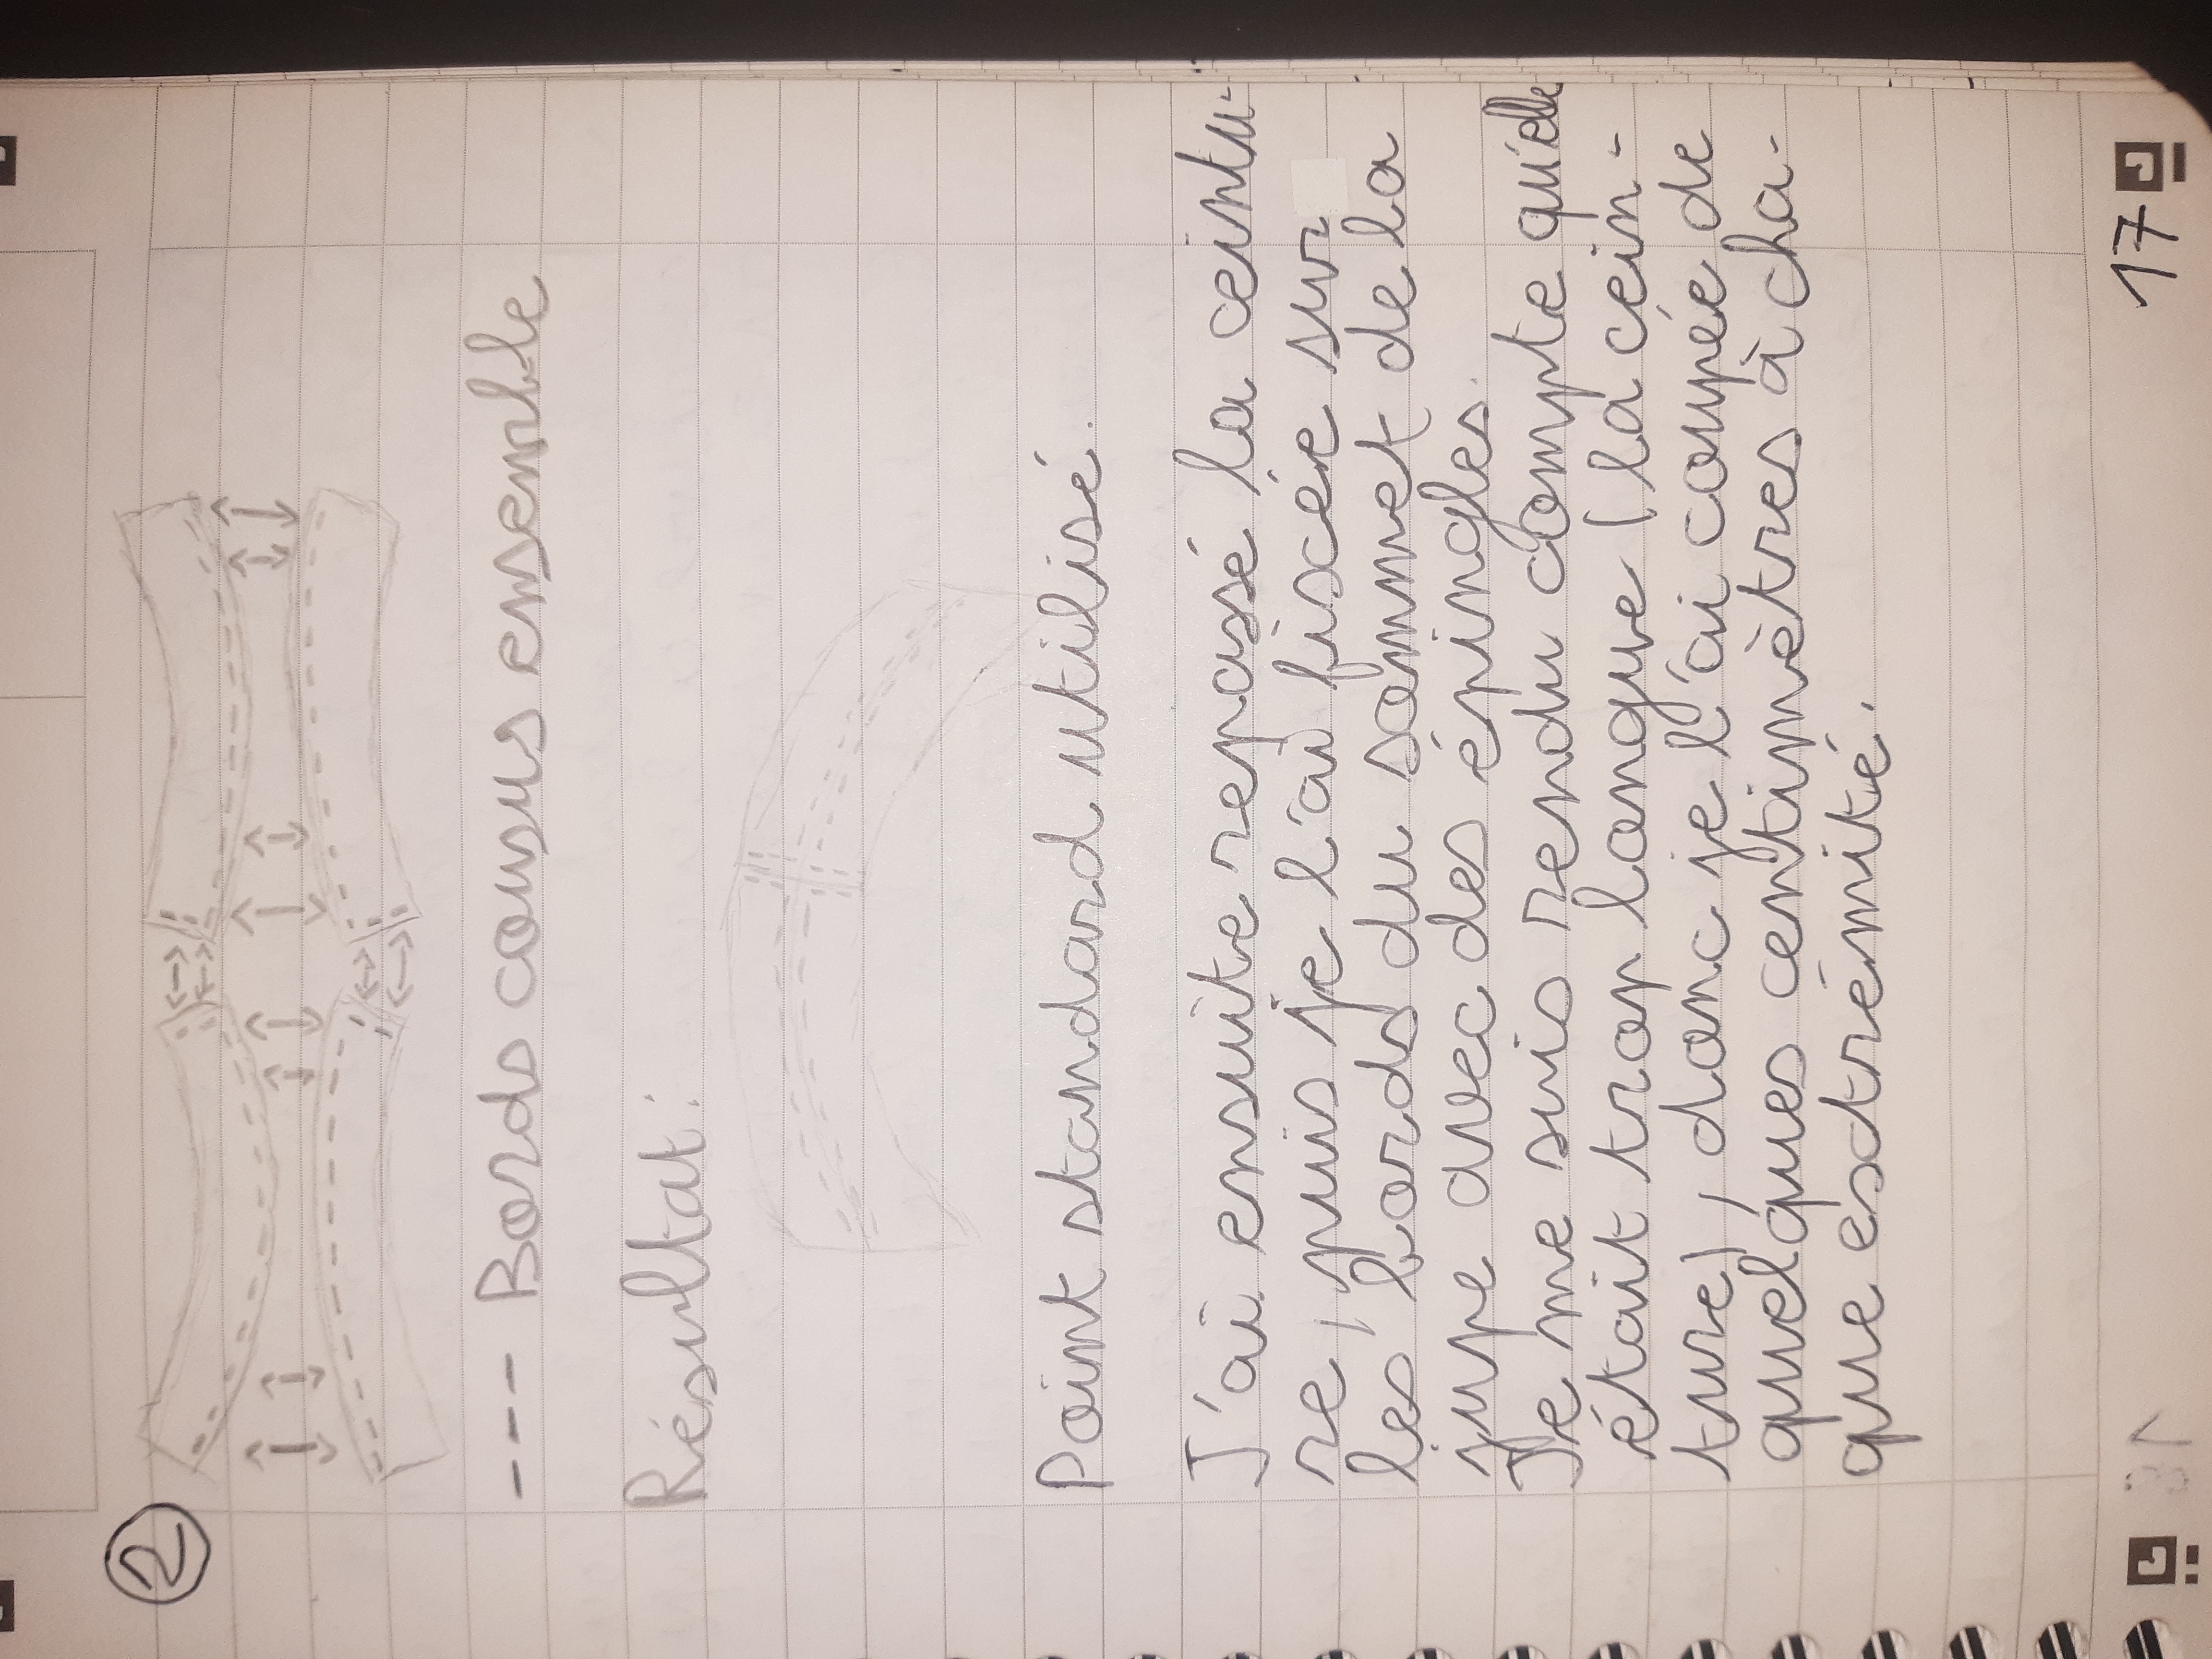 ②
---- Bords cousus ensemble
Résultat:
Point standard utilisé.
J'ai ensuite repassé la ceintu-
re, puis je l'ai fixée sur
les bords du sommet de la
jupe avec des épingles.
Je me suis rendu compte qu'elle
était trop longue (la cein-
ture), donc je l'ai coupée de
quelques centimètres à cha-
que extrémité.
17